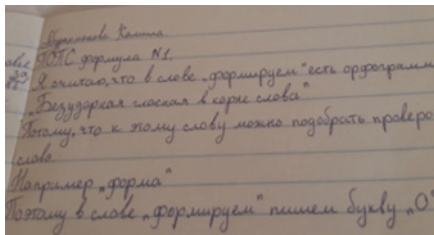 Камила
ПОПС формула №1.
Я считаю, что в слове „формируем" есть орфограмм
„Безударная гласная в корне слова"
Потому, что к этому слову можно подобрать проверо
слово.
Например „форма"
Поэтому в слове „формируем" пишем букву „О"